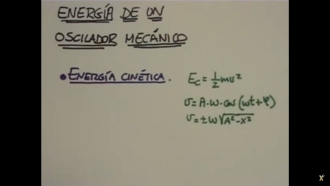 ENERGÍA DE UN
OSCILADOR MECÁNICO
• ENERGÍA CINÉTICA.
Ec = 1/2 mv²
v = A·w·cos(wt+φ)
v = ±w√A²-x²